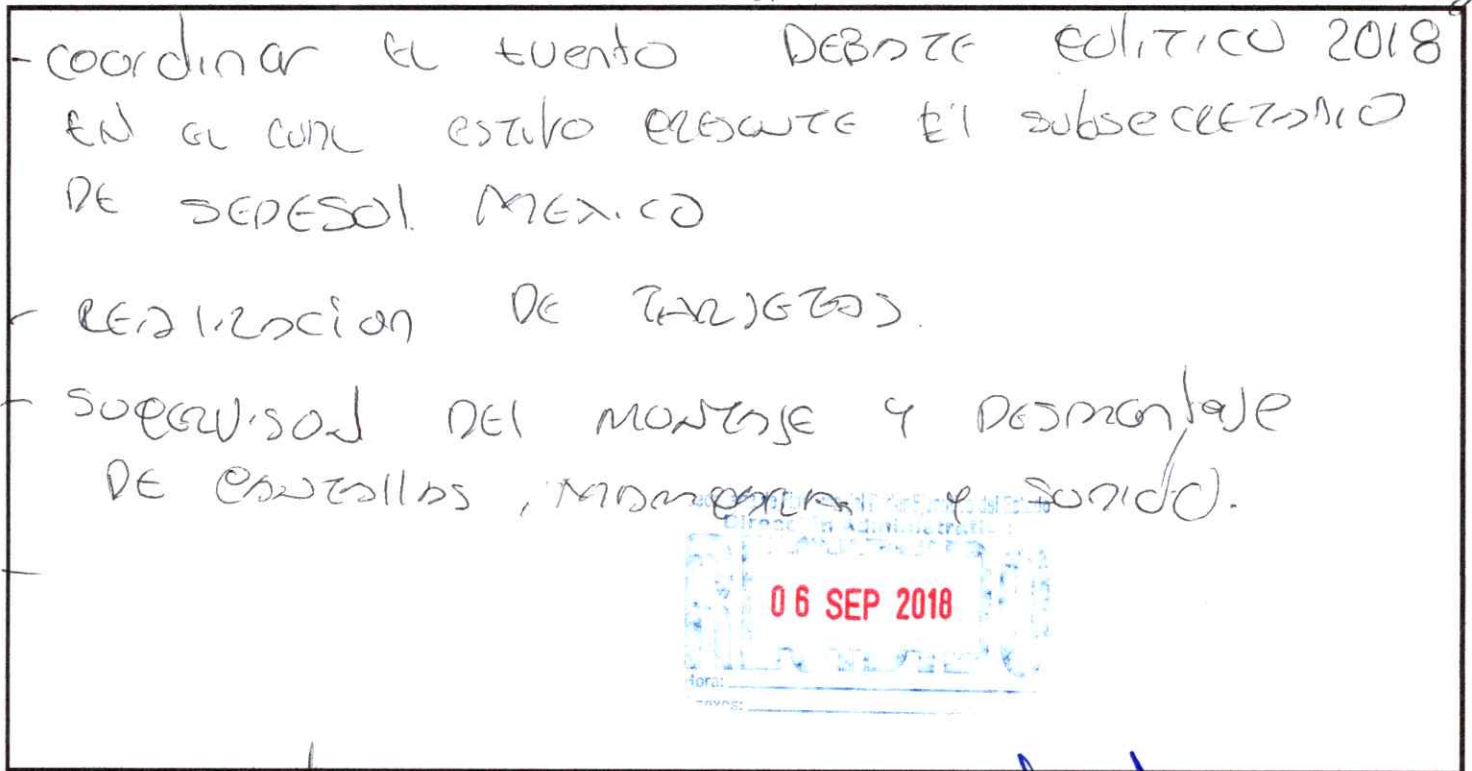 - coordinar EL Evento DEBATE POLITICO 2018
EN EL CUAL estubo PRESENTE El subsecretario
DE SEDESOL MEXICO
- REALIZACION DE TARJETAS.
- SUPERVISON DEL MONTAJE Y DESMONTAJE
DE PANTALLAS, MAMPARA Y SONIDO.
Dirección Administrativa
06 SEP 2018
Hora: